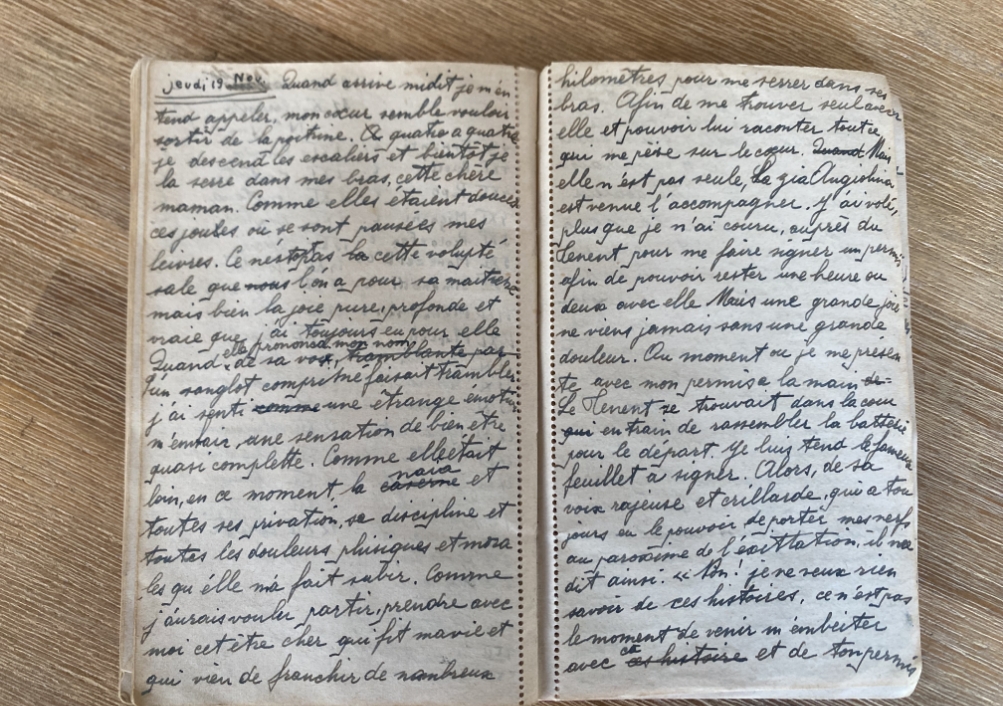 jeudi 19 Nov. Quand arrive midit je m'en
tend appeler, mon cœur semble vouloir
sortir de la poitrine. A quatre a quatre
je descend les escaliers et bientot je
la serre dans mes bras, cette chère
maman. Comme elles étaient douces
ces joules ou se sont pausées mes
leivres. Ce n'est pas la cette volupté
sale que nous l'on a pour sa maitresse
mais bien la joie pure, profonde et
vraie que j'ai toujours eu pour elle
Quand elle prononsa mon nom de sa voix, tramblante par
qu'un sanglot comprimé faisait trambler
j'ai senti comme une étrange émotion
m'envair, une sensation de bien être
quasi complette. Comme elle était
loin, en ce moment, la caserne naia et
toutes ses privation, sa discipline et
toutes les douleurs phisiques et mora
les qu'elle m'a fait subir. Comme
j'aurais vouler partir, prendre avec
moi cet être cher qui fit ma vie et
qui vien de franchir de nombreux
kilomètres pour me serrer dans ses
bras. Afin de me trouver seul avec
elle et pouvoir lui raconter toute
qui me pèse sur le cœur. Quand Mais
elle n'est pas seule, la zia Angiolina
est venue l'accompagner. J'ai volé,
plus que je n'ai couru, auprès du
Tenent pour me faire signer un permis
afin de pouvoir rester une heure ou
deux avec elle Mais une grande joie
ne viens jamais sans une grande
douleur. Au moment ou je me présen
te avec mon permis a la main de
Le Tenent se trouvait dans la cour
qui en train de rassembler la batterie
pour le départ. Je luis tend le fameux
feuillet à signer. Alors, de sa
voix rajeuse et crillarde, qui a tou
jours eu le pouvoir de porter mes nerfs
au paroxime de l'éxittation, il me
dit ainsi. « Non! je ne veux rien
savoir de ces histoires, ce n'est pas
le moment de venir m'embeiter
avec ces ce histoire et de ton permis